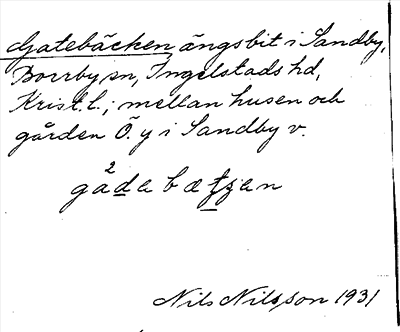 Gatebäcken ängsbit i Sandby,
Borrby sn, Ingelstads hd,
Krist. l.; mellan husen och
gården Ö. y i Sandby v.
gada bætʃan
Nils Nilsson 1931